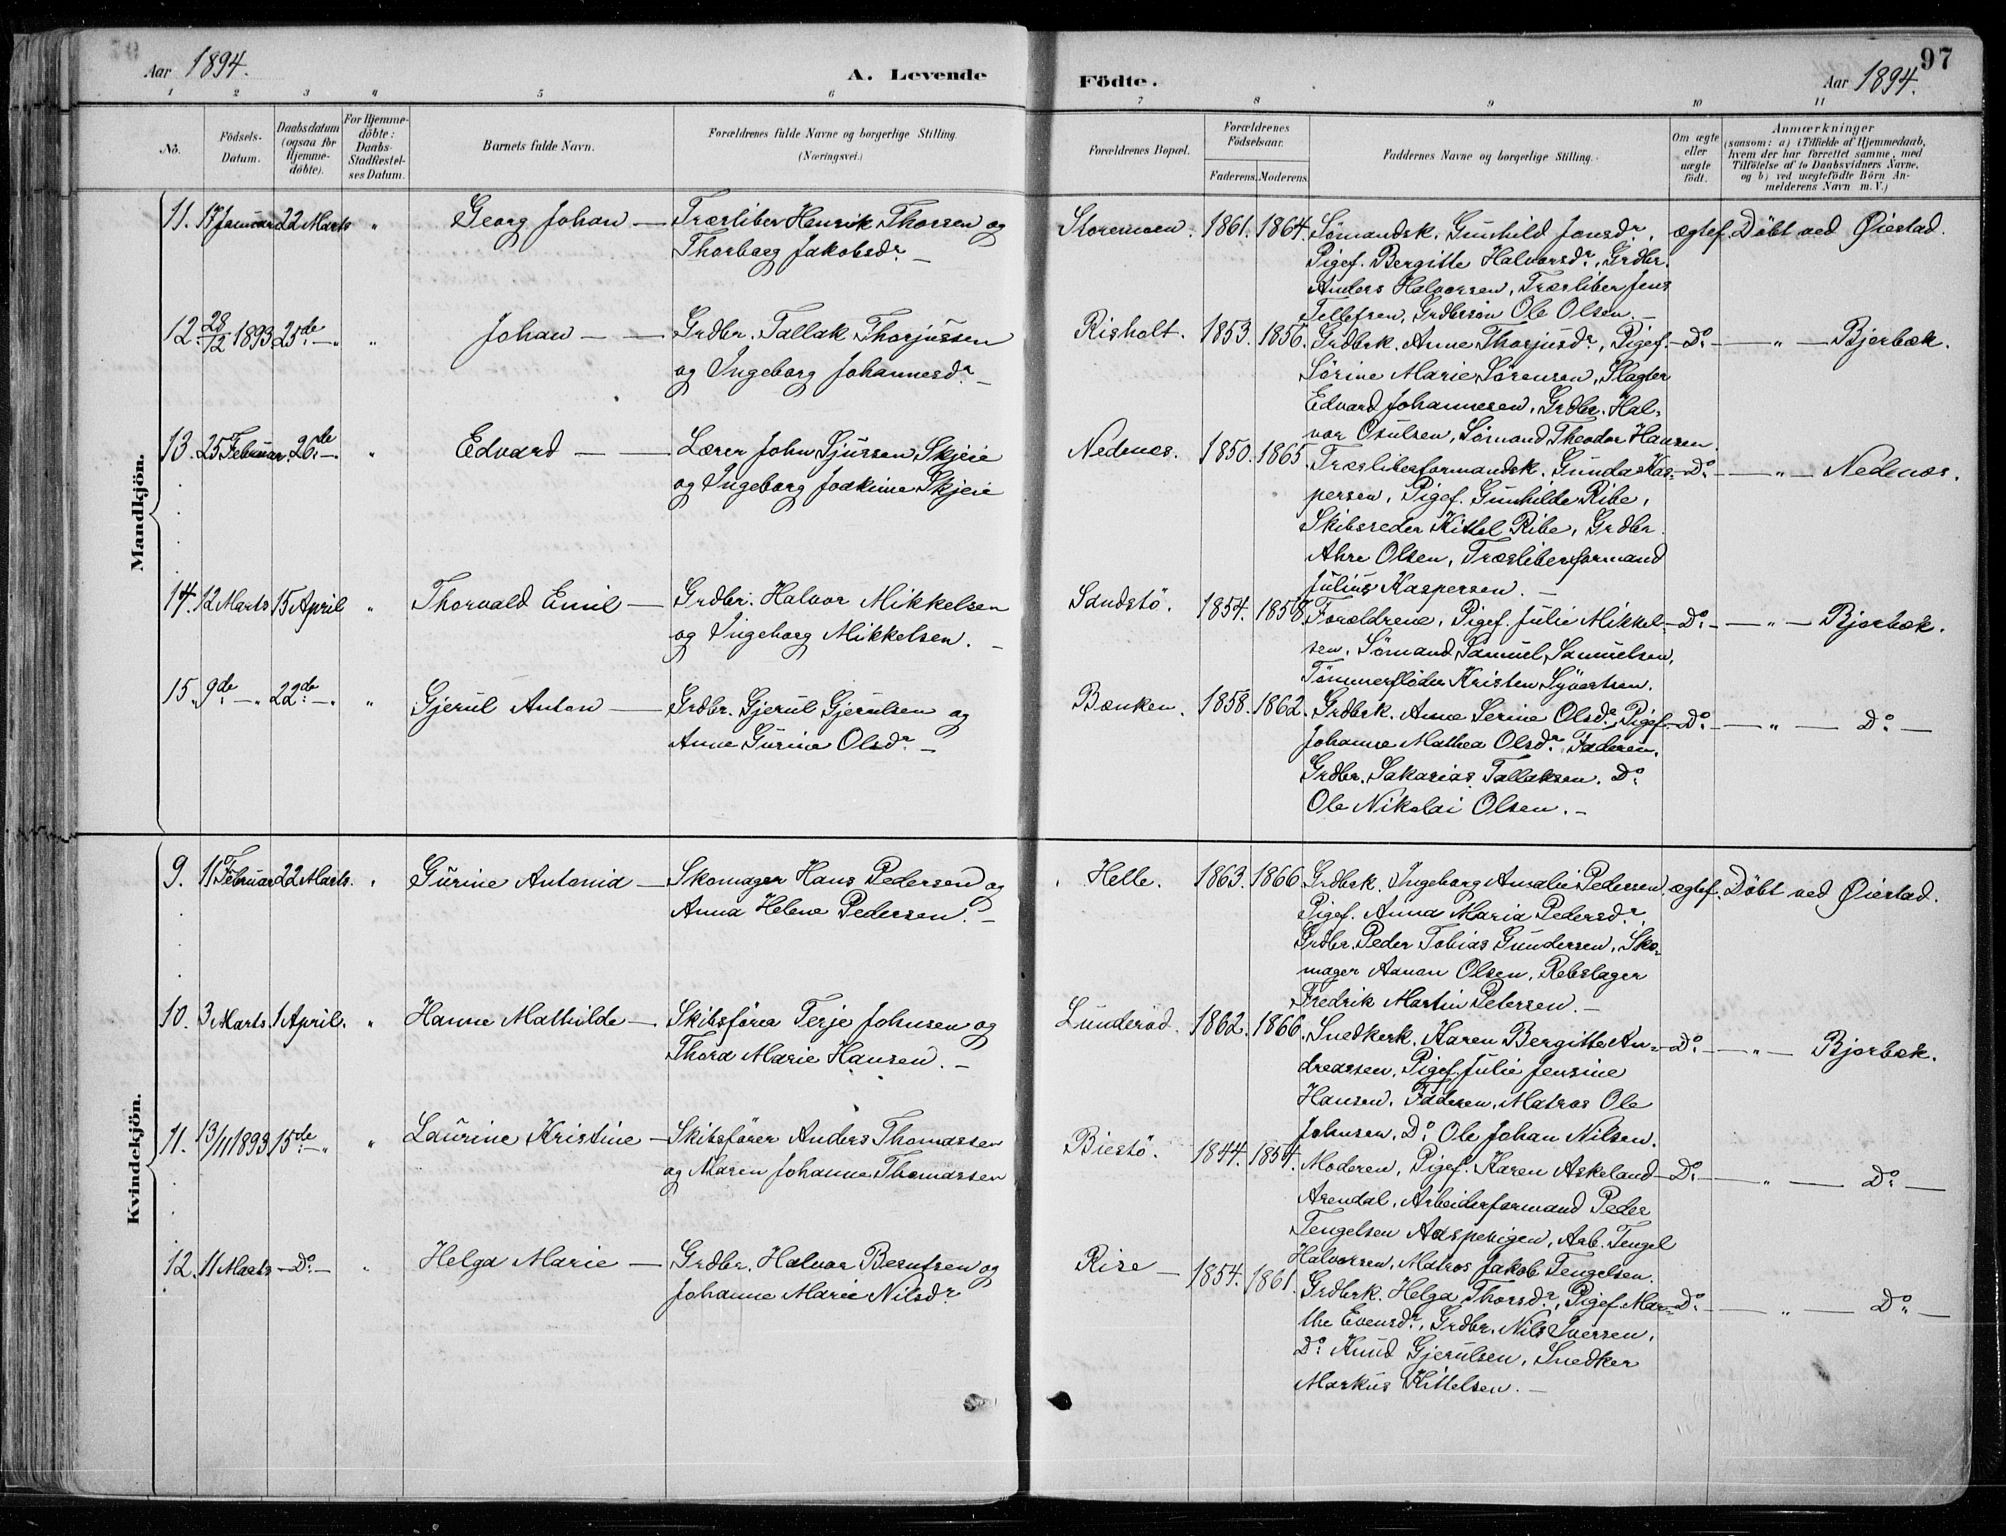 Aar 1894.
A. Levende
Födte.
97
Aar 1894.
1 2 3 4 5 6 7 8 9 10 11
No.
Födsels-
Datum.
Daabsdatum
(ogsaa for
Hjemme-
döbte).
For Hjemme-
döbte:
Daabs-
Stadfæstel-
ses Datum.
Barnets fulde Navn.
Forældrenes fulde Navne og borgerlige Stilling.
(Næringsvei.)
Forældrenes Bopæl.
Forældrenes
Födselsaar.
Faderens. Moderens.
Faddernes Navne og borgerlige Stilling.
Om ægte
eller
uægte
födt.
Anmærkninger
(saasom: a) i Tilfælde af Hjemmedaab,
hvem der har forrettet samme, med
Tilföielse af to Daabsvidners Navne,
og b) ved uægtefödte Börn An-
melderens Navn m. V.)
Mandkjön.
11. 17 Januar 22 Marts " Georg Johan — Træsliber Henrik Thorsen og
Thorborg Jakobsdr. —
Storemoen. 1861. 1864. Sømandsk. Gunhild Jonsdr., ægtef. Döbt ved Øiestad.
Pigef. Bergitte Halvorsdr., Grdbr.
Anders Halvorsen, Træsliber Jens
Tellefsen, Grdbrsøn Ole Olsen. —
12. 28/12 1893 25de — " " Johan — Grdbr. Tallak Thorjussen
og Ingeborg Johannesdr. —
Risholt. 1853. 1856. Grdbrk. Anne Thorjusdr., Pigef. — Do. — " — Bjorbæk.
Sørine Marie Sørensen, Slagter
Edvard Johannesen, Grdbr. Hal-
vor Osulsen, Sømand Theodor Hansen.
13. 25 Februar 26de — " Edvard — Lærer John Sjursen Skjeie
og Ingeborg Joakime Skjeie
Nedenæs. 1850. 1865. Træsliberformandsk. Gunda Kas- — Do. — " — Nedenæs.
persen, Pigef. Gunhilde Ribe,
Skibsreder Kittel Ribe, Grdbr.
Ahre Olsen, Træsliberformand
Julius Kaspersen. —
14. 12 Marts 15 April " Thorvald Emil — Grdbr. Halvor Mikkelsen
og Ingeborg Mikkelsen. —
Sandstø. 1854. 1858. Forældrene, Pigef. Julie Mikkel- — Do. — " — Bjorbæk.
sen, Sømand Samuel Samuelsen,
Tømmerfløder Kristen Syvertsen.
15. 9de — " 22de — " " Gjerul Anton — Grdbr. Gjerul Gjerulsen og
Anne Gurine Olsdr. —
Bænken. 1858. 1862. Grdbrk. Anne Serine Olsdr., Pigef. — Do. — " — Do. —
Johanne Mathea Olsdr. Faderen,
Grdbr. Sakarias Tallaksen, Do.
Ole Nikolai Olsen. —
Kvindekjön.
9. 11 Februar 22 Marts. " Gurine Antonia — Skomager Hans Pedersen og
Anna Helene Pedersen. —
Helle. 1863. 1866. Grdbrk. Ingeborg Amalie Pedersen, ægtef. Döbt ved Øiestad.
Pigef. Anna Maria Pedersdr.,
Grdbr. Peder Tobias Gundersen, Sko-
mager Aanon Olsen, Rebslager
Fredrik Martin Petersen. —
10. 3 Marts 1 April. " Hanne Mathilde — Skibsfører Terje Johnsen og
Thora Marie Hansen. —
Lunderød. 1862. 1866. Snedkerk. Karen Bergitte An- — Do. — " — Bjorbæk.
dreassen, Pigef. Julie Jensine
Hansen, Faderen, Matros Ole
Johnsen, Do. Ole Johan Nilsen.
11. 13/11 1893 15de — " " Laurine Kristine — Skibsfører Anders Thomassen
og Maren Johanne Thomassen
Biestø. 1844. 1854. Moderen, Pigef. Karen Askeland — Do. — " — Do. —
Arendal, Arbeiderformand Peder
Tengelsen Aaspevigen, Arb. Tengel
Halvorsen, Matros Jakob Tengelsen.
12. 11 Marts — Do. — " Helga Marie — Grdbr. Halvor Berntsen og
Johanne Marie Nilsdr.
Rise — 1854. 1861. Grdbrk. Helga Thorsdr., Pigef. Mar- — Do. — " — Do. —
the Evensdr., Grdbr. Nils Iversen,
Do. Knud Gjerulsen, Snedker
Markus Kittelsen. —